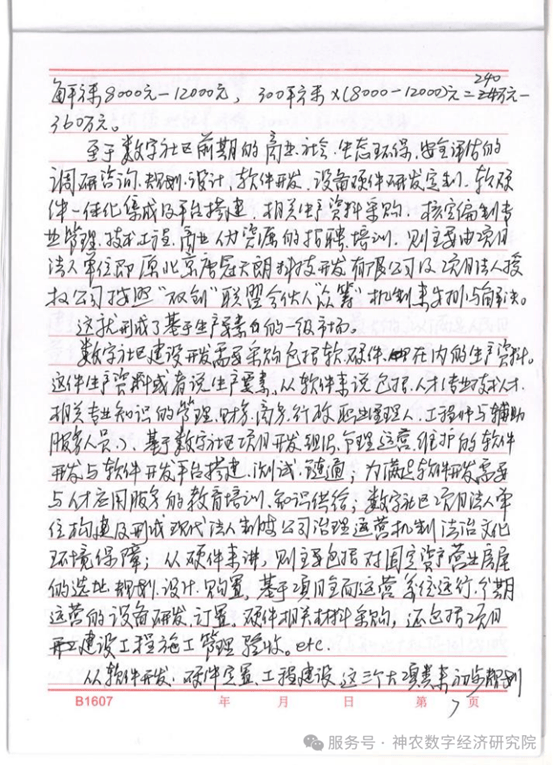 每平方米8000元—12000元，300平方米×(8000—12000)元=240万元—
360万元。
至于数字社区前期的商业、社会、生态环保、安全评估的
调研咨询、规划、设计、软件开发、设备硬件研发定制、软硬
件一体化集成及平台搭建、相关生产资料采购、核定编制专
业管理、技术工程、商业人力资源的招聘、培训，则主要由项目
法人单位即原北京唐冠天朗科技开发有限公司及项目法人授
权公司按照“双创”联盟合伙人“众筹”机制来安排与解决。
这就形成了基于生产要素的一级市场。
数字社区建设开发需要采购包括软、硬件在内的生产资料。
这些生产资料或者说生产要素，从软件来说包括人才(专业技术人才、
相关专业知识的管理、财务、商务、行政职业经理人、工程师与辅助
服务人员、)、基于数字社区项目开发、组织、管理、运营、维护的软件
开发与软件开发平台搭建、测试、链通；为满足软件开发需要
与人才应用服务的教育培训、知识供给；数字社区项目法人单
位构建及形成现代法人制度公司治理运营机制法治文化
环境保障；从硬件来讲，则主要包括对固定资产营业房屋
的选址、规划、设计、购置，基于项目全面运营系统运行、分期
运营的设备研发、订置、硬件相关材料采购，还包括项目
开工建设工程施工管理验收。etc.
从软件开发、硬件定置、工程建设这三个大项类来初步规划
B1607 年 月 日 第 7 页
服务号·神农数字经济研究院